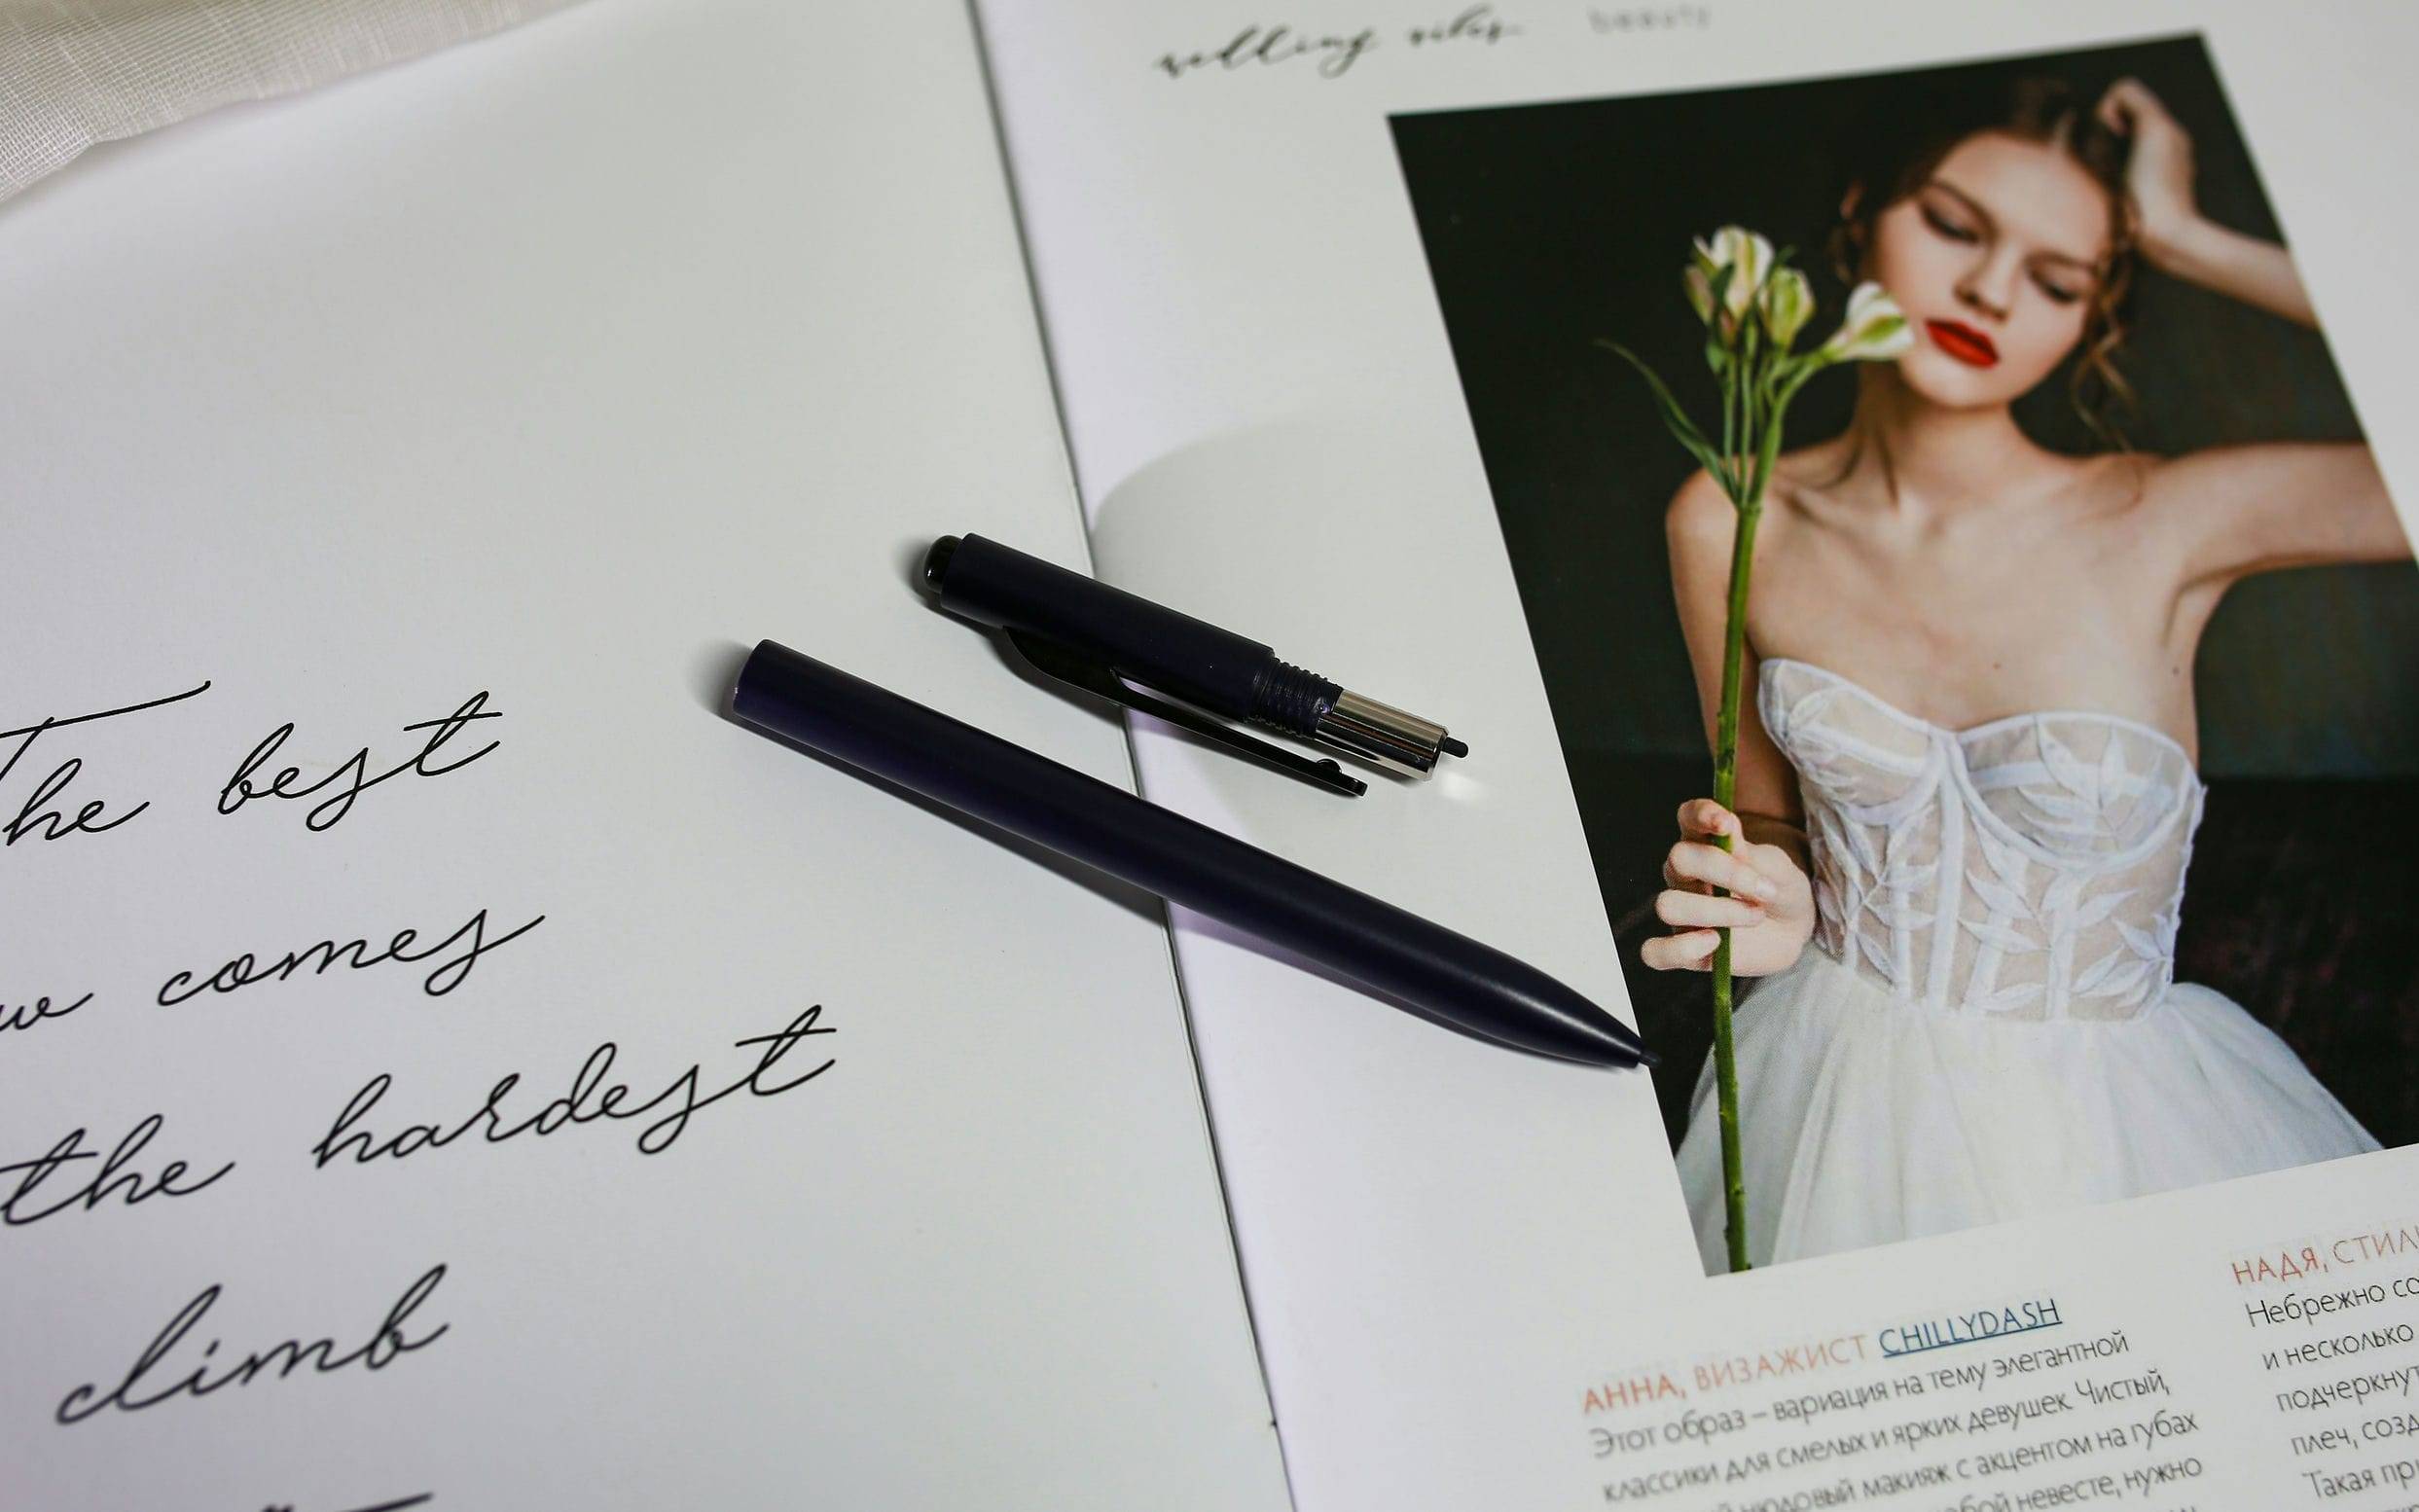 The best
comes
the hardest
climb
wedding vibes beauty
АННА, ВИЗАЖИСТ CHILLYDASH
Этот образ – вариация на тему элегантной
классики для смелых и ярких девушек. Чистый,
нюдовый макияж с акцентом на губах
невесте, нужно
НАДЯ,
Небрежно
и несколько
Такая